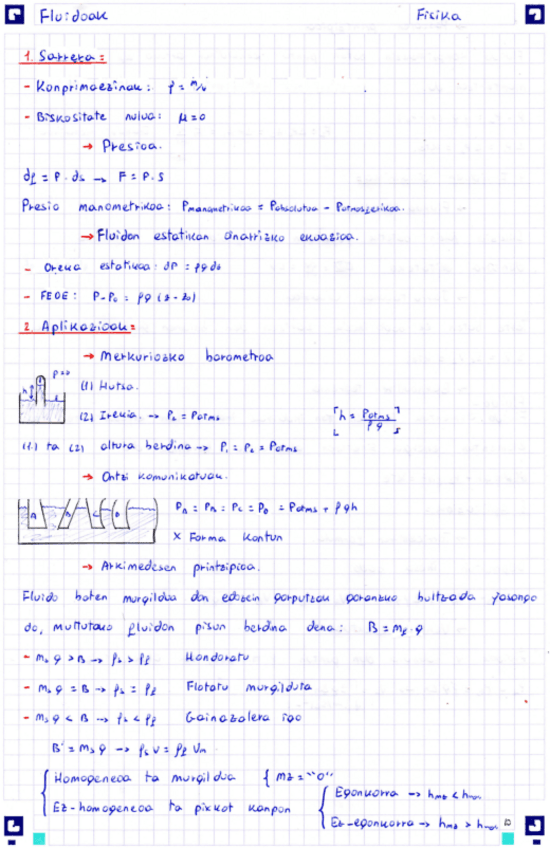 Fluidoak Fisika
1. Sarrera:
- Konprimaezinak: ρ = m/v
- Biskositate nulua: μ = 0
→ Presioa.
df = P · ds → F = P · S
Presio manometrikoa: Pmanometrikoa = Pabsolutua - Patmosferikoa.
→ Fluidon estatikan oinarrizko ekuazioa.
- Oreka estatikoa: dP = ρg dz
- FEOE: P - P₀ = ρg (z - z₀)
2. Aplikazioak:
→ Merkuriozko barometroa
P=0
h
(1) Hutsa.
(2) Irekia. → P₂ = Patms
h = Patms / ρg
(1) ta (2) altura berdina → P₁ = P₂ = Patms
→ Ontzi komunikatuak.
A B C D
PA = PB = PC = PD = Patms + ρgh
x Forma kontun
→ Arkimedesen printzipioa.
Fluido baten murgildua don edozein gorputzak goranzko bultzada jasango
do, mututako fluidon pisun berdina dena: B = mf · g
- ms g > B → ρs > ρf Hondoratu
- ms g = B → ρs = ρf Flotatu murgilduta
- ms g < B → ρs < ρf Gainazalera igo
B' = ms g → ρs v = ρf Vm
Homogeneoa ta murgildua { Mz = "0"
Ez-homogeneoa ta pixkot kanpon
Egonkorra →
Ez-egonkorra →